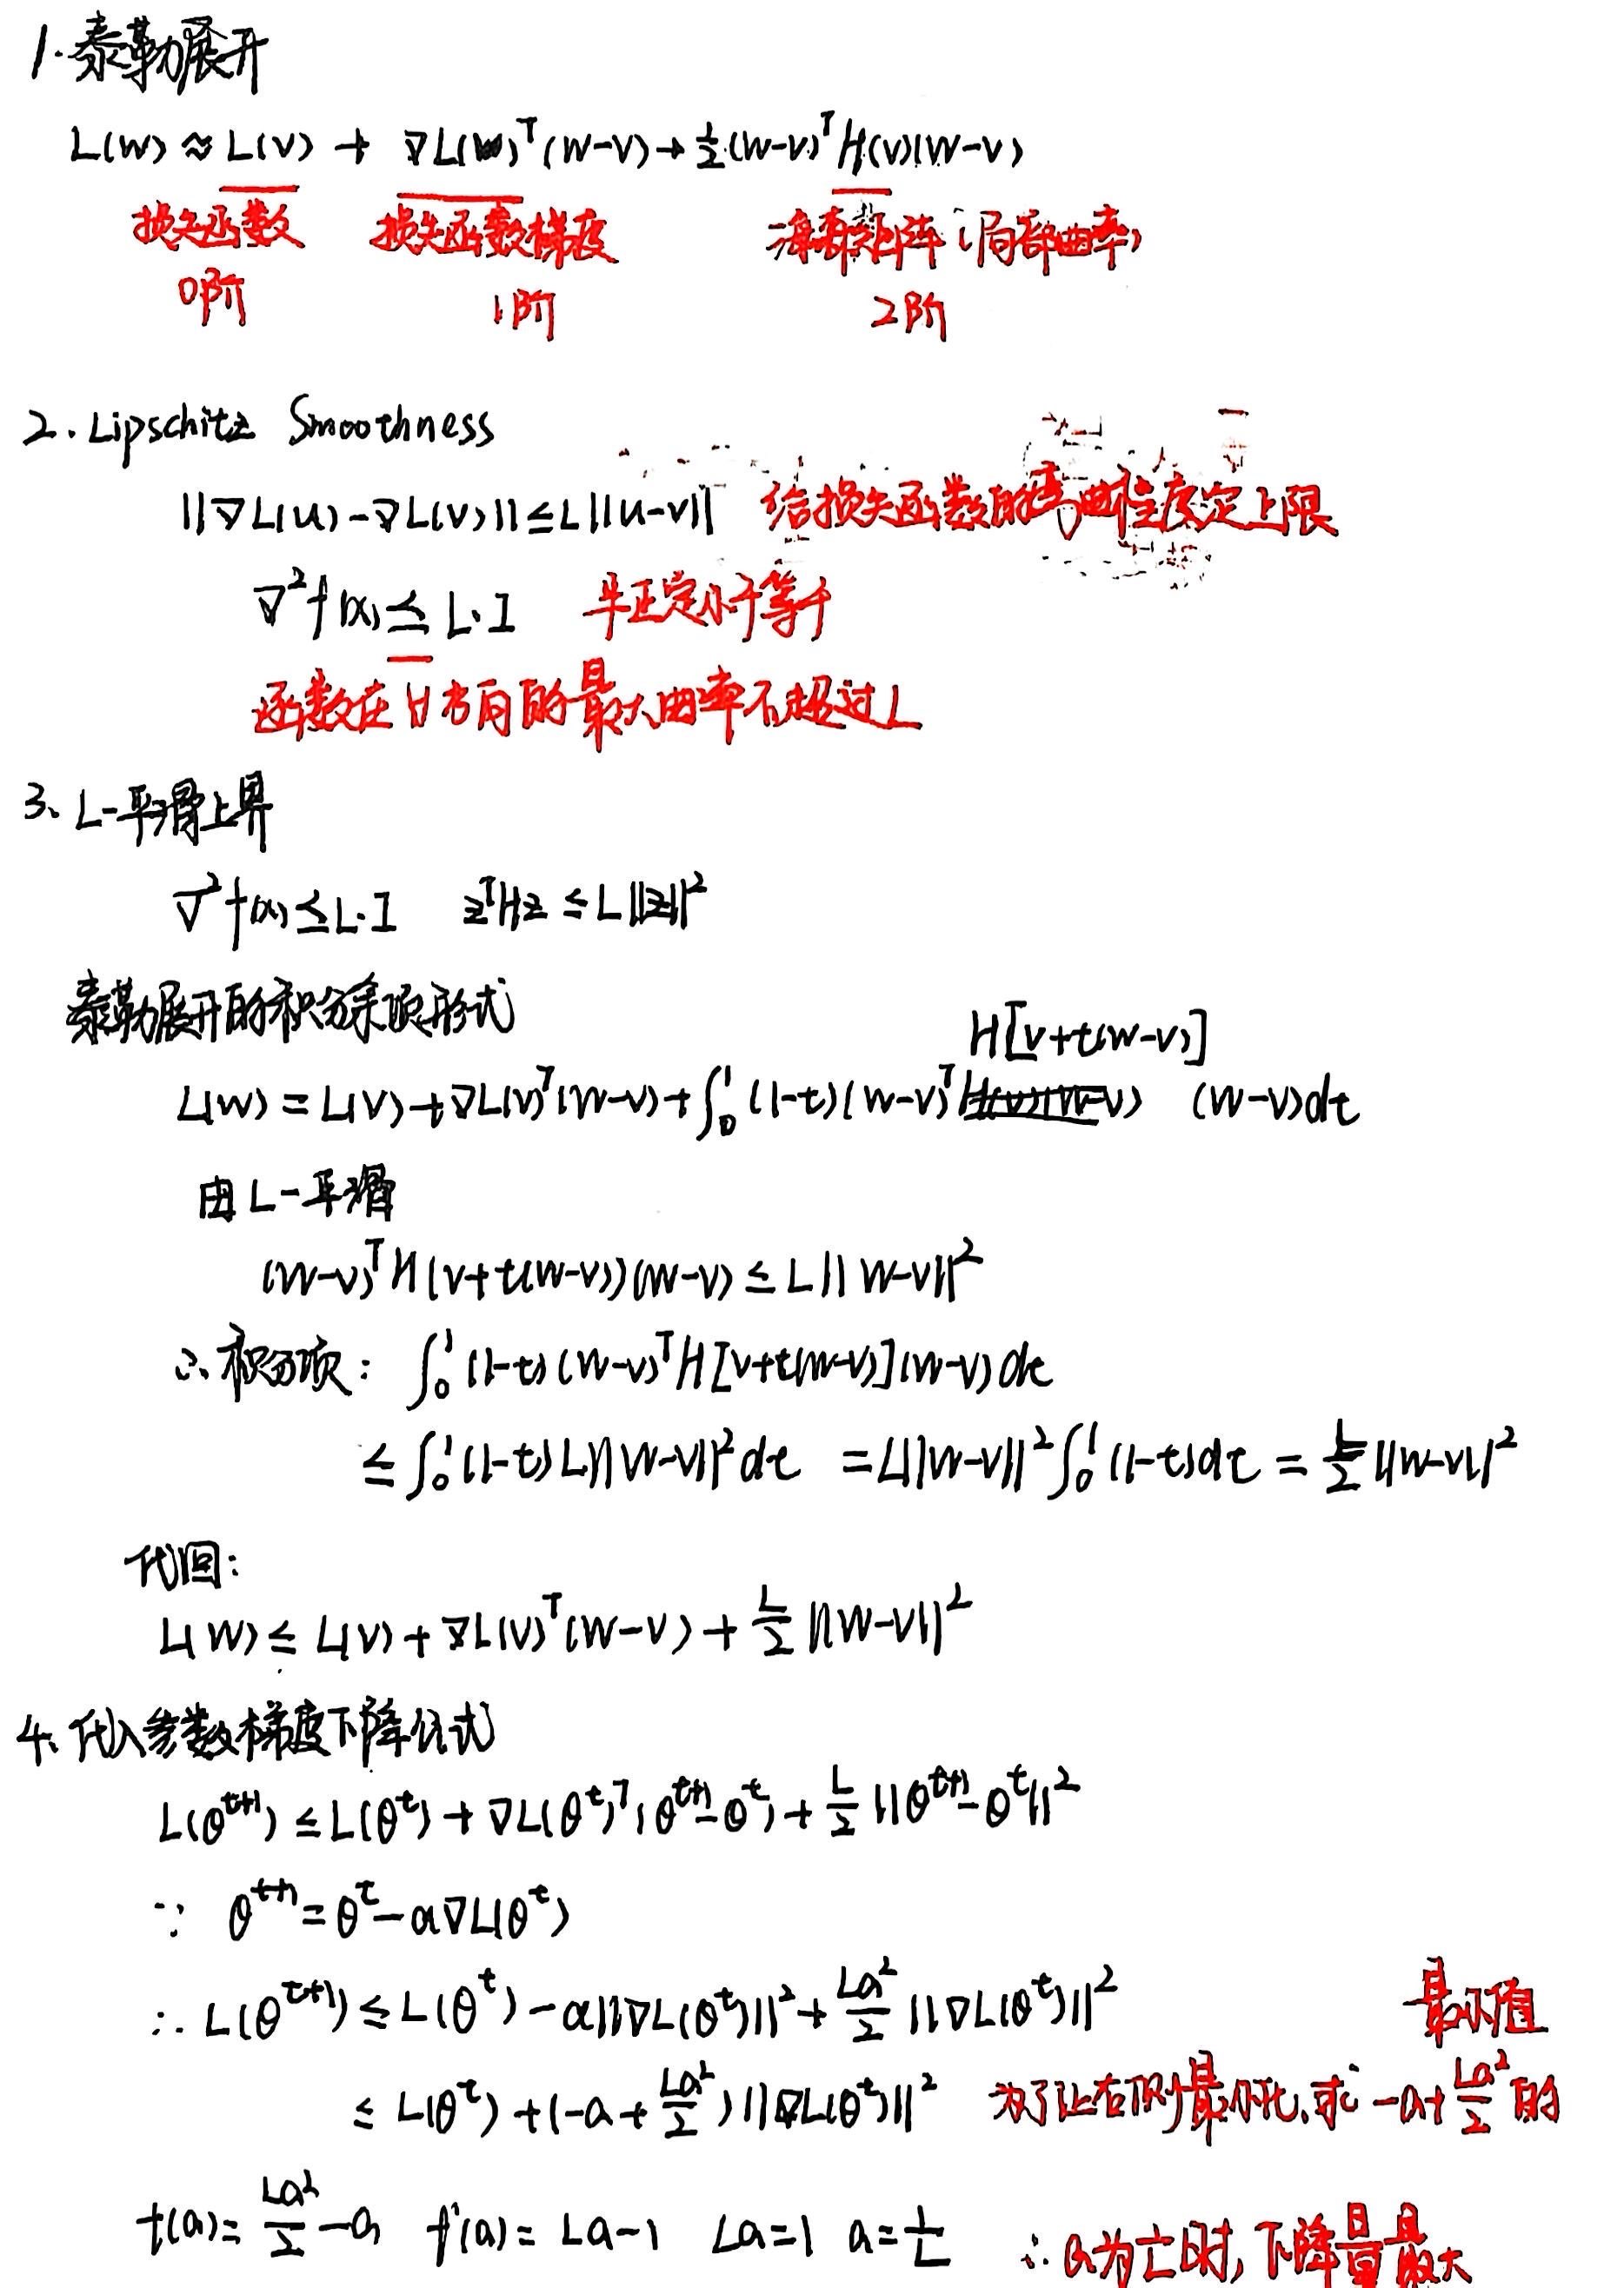 1.泰勒展开
L(w) ≈ L(v) + ∇L(v)^T(w-v) + ½(w-v)^T H(v)(w-v)
损失函数 损失函数梯度 海森矩阵(局部曲率)
0阶 1阶 2阶
2. Lipschitz Smoothness
||∇L(u)-∇L(v)|| ≤ L||u-v|| 给损失函数的弯曲程度定上限
∇²f(x) ⪯ L·I 半正定小于等于
函数在 方向的最大曲率不超过L
3、L-平滑上界
∇²f(x) ⪯ L·I z^T H z ≤ L||z||²
泰勒展开的积分余项形式
H[v+t(w-v)]
L(w) = L(v)+∇L(v)^T(w-v)+∫₀¹(1-t)(w-v)^T (w-v)dt
由L-平滑
(w-v)^T H(v+t(w-v))(w-v) ≤ L||w-v||²
∴积分项: ∫₀¹(1-t)(w-v)^T H[v+t(w-v)](w-v)dt
≤ ∫₀¹(1-t)L||w-v||²dt = L||w-v||²∫₀¹(1-t)dt = L/2||w-v||²
代回:
L(w) ≤ L(v) + ∇L(v)^T(w-v) + L/2||w-v||²
4、代入参数梯度下降公式
L(θ^{t+1}) ≤ L(θ^t) + ∇L(θ^t)^T(θ^{t+1}-θ^t) + L/2||θ^{t+1}-θ^t||²
∵ θ^{t+1} = θ^t-α∇L(θ^t)
∴ L(θ^{t+1}) ≤ L(θ^t) - α||∇L(θ^t)||² + Lα²/2||∇L(θ^t)||² 最小值
≤ L(θ^t) + (-α + Lα²/2)||∇L(θ^t)||² 为了让右侧最小化,求 -α+Lα²/2 的
f(α) = Lα²/2 - α f'(α) = Lα-1 Lα=1 α=1/L ∴α为1/L时,下降量最大